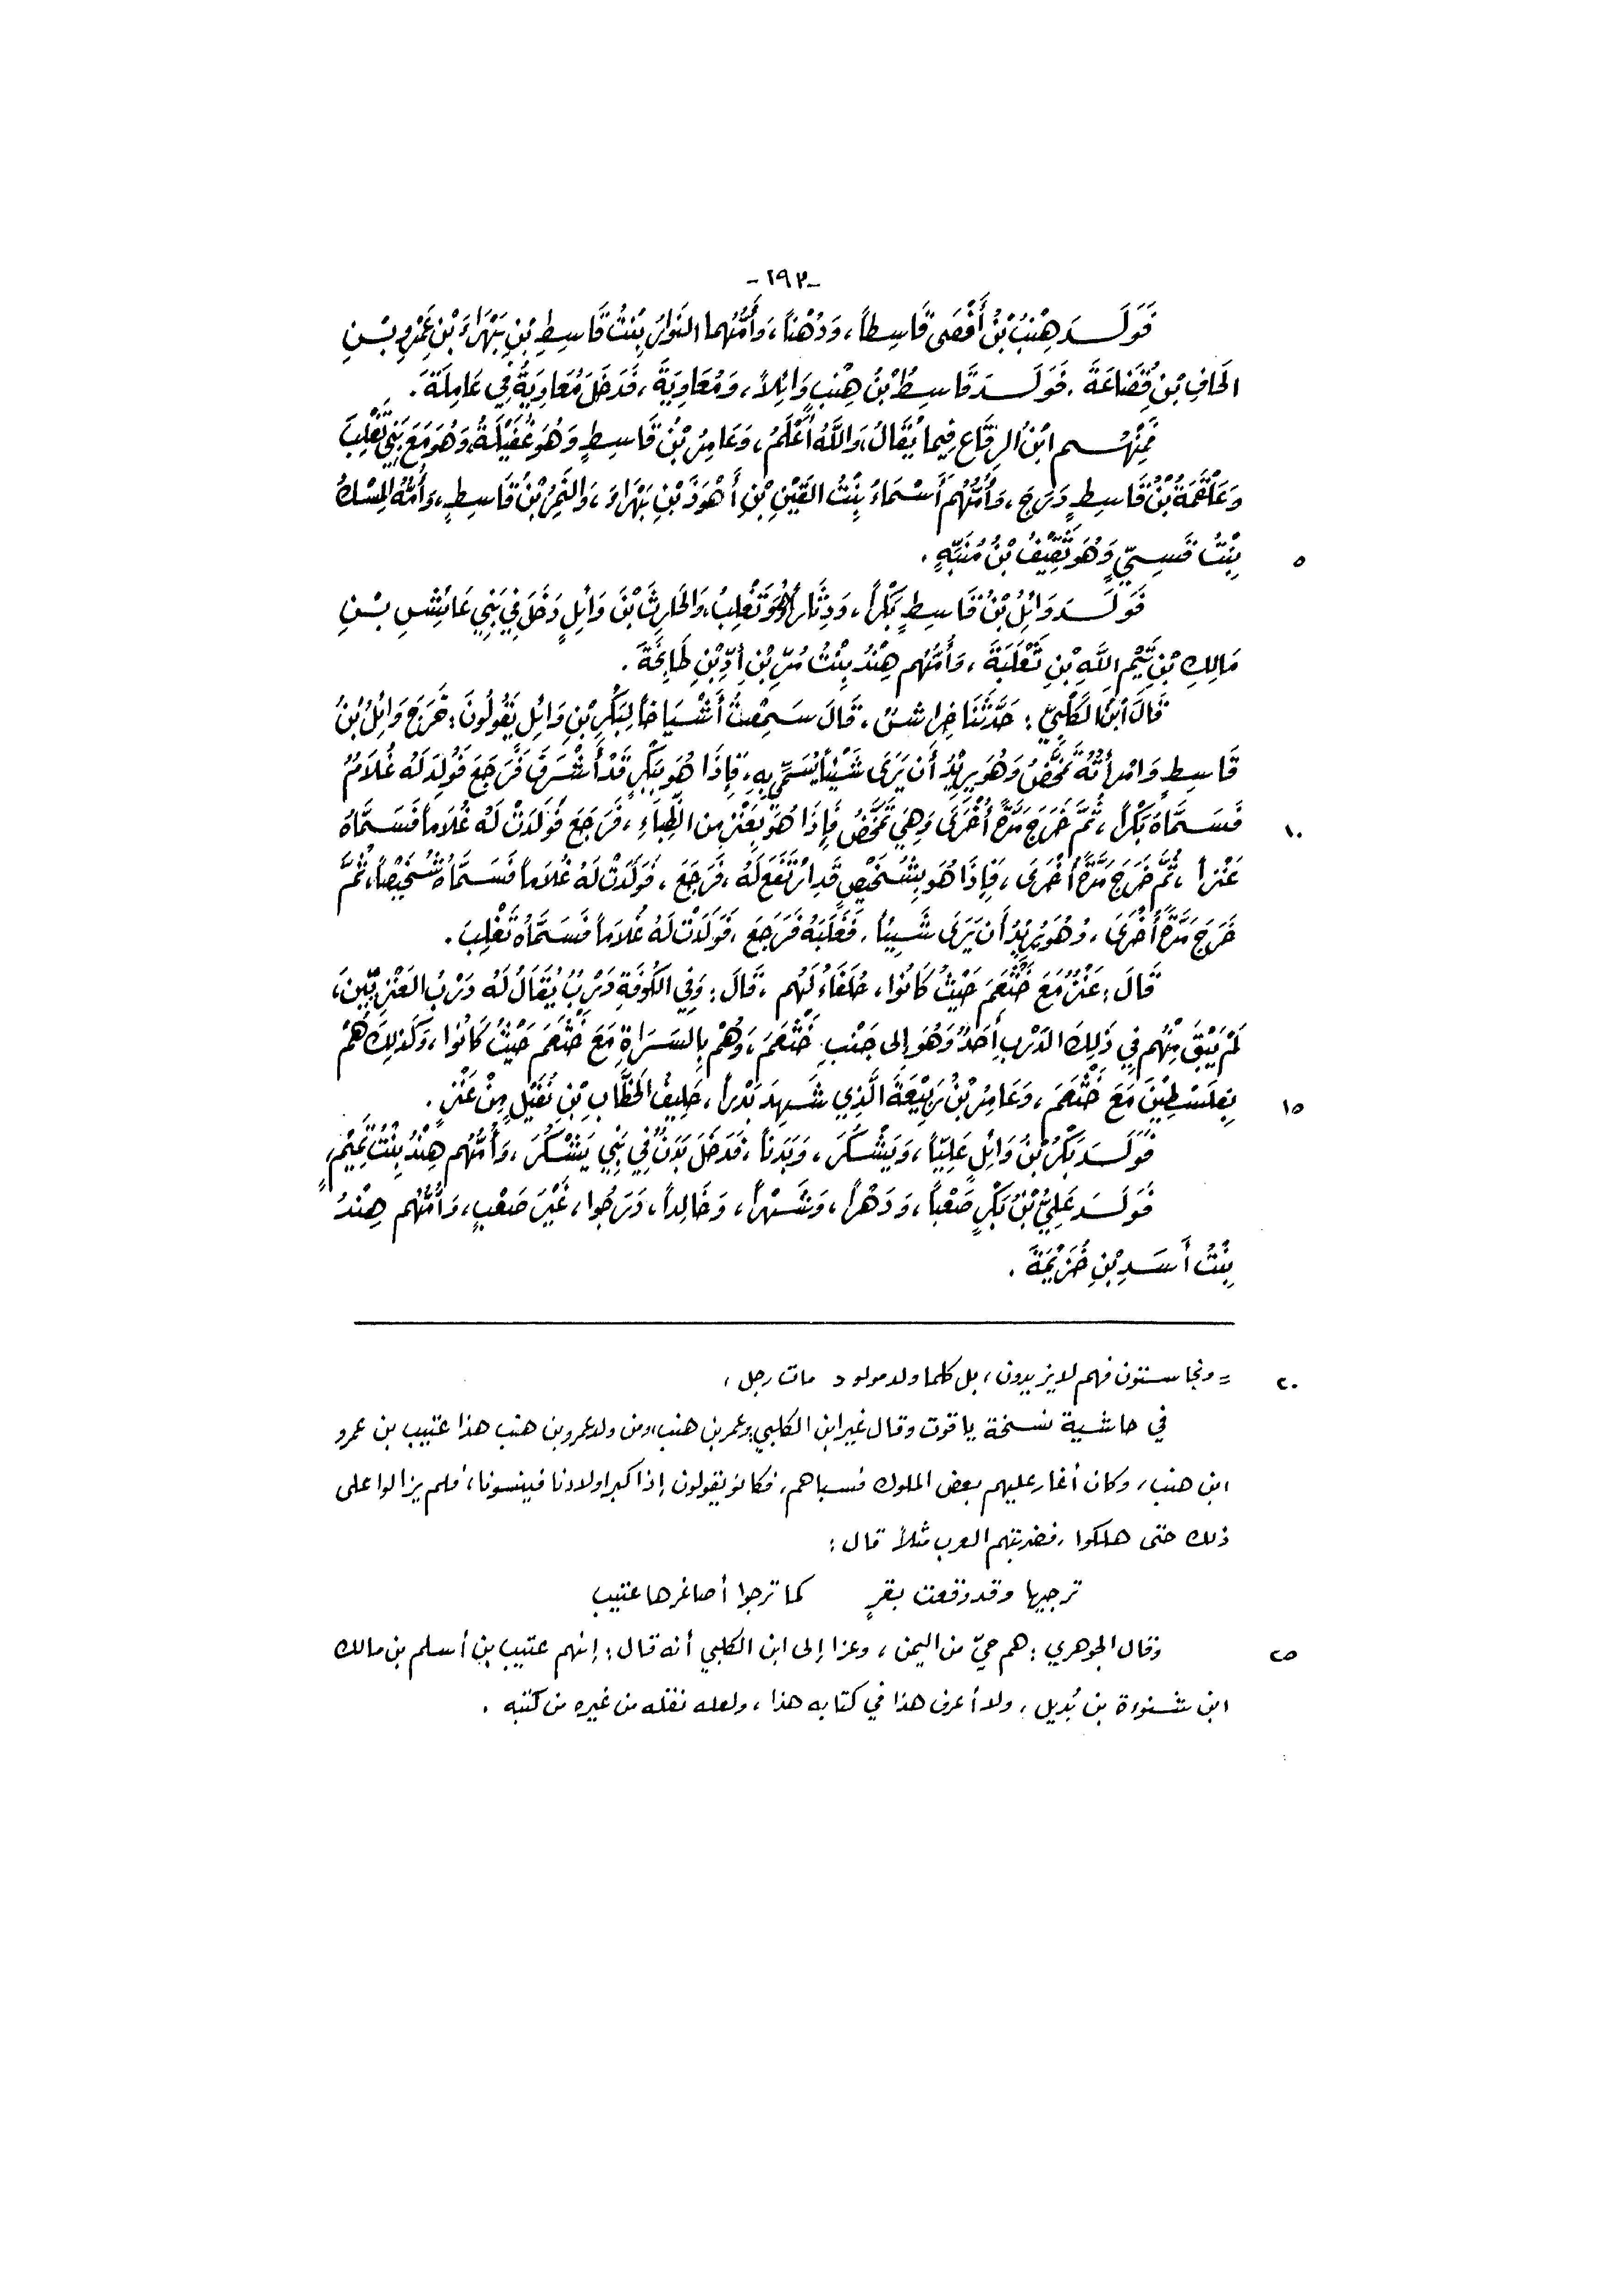 -١٩٣-
فَوَلَـدَ هِنْبُ بْنُ أَفْصَى قَاسِطاً، وَدُهْناً، وَأُمُّهُما النَوَارُ بِنْتُ قَاسِطِ بْنِ بَهْرَاءَ بْنِ عَمْرِو بْـنِ
الحَافِ بْنِ قُضَاعَةَ. فَوَلَـدَ قَاسِطُ بْنُ هِنْبٍ وَائِلاً، وَمُعَاوِيَةَ، فَدَخَلَ مُعَاوِيَةُ فِي عَامِلَةَ.
فَمِنْهُـم ابْنُ الرِقَاعِ فِيما يُقَالُ، وَاللَّهُ أَعْلَمُ، وَعَامِرُ بْنُ قَاسِطٍ وَهُوَ غُفَيْلَةُ، وَهُوَ مَعَ بَنِي تَغْلِبَ
وَعَلْقَمَةُ بْنُ قَاسِطٍ دَرَجَ، وَأُمُّهُم أَسْمَاءُ بِنْتُ القَيْنِ بْنِ أَهْوَدَ بْنِ بَهْرَاءَ، وَالنَّمِرُ بْنُ قَاسِطٍ، وَأُمُّهُ المِسْكُ
بِنْتُ قَسِـيٍّ وَهُوَ ثَقِيْفُ بْنُ مُنَبِّهٍ. ٥
فَوَلَـدَ وَائِلُ بْنُ قَاسِطٍ بَكْراً، وَدِثَاراً وَهُوَ تَغْلِبُ، وَالحَارِثَ بْنَ وَائِلٍ دَخَلَ فِي بَنِي عَائِشِ بْـنِ
مَالِكِ بْنِ تَيْمِ اللَّهِ بْنِ ثَعْلَبَةَ، وَأُمُّهُم هِنْدُ بِنْتُ مُرِّ بْنِ أُدِّ بْنِ طَابِخَةَ.
قَالَ ابْنُ الكَلْبِيِّ: حَدَّثَنَا خِرَاشٌ، قَالَ سَمِعْتُ أَشْيَاخاً لِبَكْرِ بْنِ وَائِلٍ يَقُولُونَ: خَرَجَ وَائِلُ بْنُ
قَاسِطٍ وَامْرأَتُهُ تَمَخَّضُ وَهُوَ يرِيْدُ أَن يَرَى شَيْئاً يُسَمِّي بِهِ، فَإِذَا هُوَ بِبَكْرٍ قَدْ أَشْرَفَ فَرَجَعَ فَوُلِدَ لَهُ غُلَامٌ
فَسَـمَّاهُ بَكْراً، ثُمَّ خَرَجَ مَرَّةً أُخْرَى وَهِيَ تَمَخَّضُ فَإِذَا هُوَ بِعَنْزٍ مِن الظِبَاءِ، فَرَجَعَ فَوَلَدَتْ لَهُ غُلَاماً فَسَـمَّاهُ ١٠
عَنْزاً، ثُمَّ خَرَجَ مَرَّةً أُخْرَى، فَإِذَا هُوَ بِشُخَيْصٍ قَدِ ارْتَفَعَ لَهُ، فَرَجَعَ، فَوَلَدَتْ لَهُ غُلَاماً فَسَـمَّاهُ شُخَيْصاً، ثُمَّ
خَرَجَ مَرَّةً أُخْرَى، وَهُوَ يُرِيْدُ أَن يَرَى شَـيْئاً، فَغَلَبَهُ فَرَجَعَ، فَوَلَدَتْ لَهُ غُلَاماً فَسَـمَّاهُ تَغْلِبَ.
قَالَ: عَنْزٌ مَعَ خَثْعَمَ حَيْثُ كَانُوا، حُلَفَاءُ لَهُم، قَالَ: وَفِي الكُوفَةِ دَرْبٌ يُقَالُ لَهُ دَرْبُ العَنْزِيِّينَ،
لَمْ يَبْقَ مِنْهُم فِي ذَلِكَ الدَرْبِ أَحَدٌ وَهُوَ إِلى جَنْبِ خَثْعَمَ، وَهُمْ بِالسَرَاةِ مَعَ خَثْعَمَ حَيْثُ كَانُوا، وَكَذَلِكَ هُمْ
بِفِلَسْطِيْنَ مَعَ خَثْعَمَ، وَعَامِرُ بْنُ رَبِيْعَةَ الَّذِي شَـهِدَ بَدْراً، حَلِيفُ الخَطَّابِ بْنِ نُفَيْلٍ مِنْ عَنْزٍ. ١٥
فَوَلَـدَ بَكْرُ بْنُ وَائِلٍ عَلِيّاً، وَيَشْكُرَ، وَبَدَناً، فَدَخَلَ بَدَنٌ فِي بَنِي يَشْكُرَ، وَأُمُّهُم هِنْدُ بِنْتُ تَمِيْمٍ،
فَوَلَـدَ عَلِيُّ بْنُ بَكْرٍ صَعْباً، وَدَهْراً، وَشَـهْراً، وَخَالِداً، دَرَجُوا، غَيْرَ صَعْبٍ، وَأُمُّهُم هِنْدُ
بِنْتُ أَسَـدِ بْنِ خُزَيْمَةَ.
= ونجا ستون فهم لا يزيدون، بل كلما ولد مولود مات رجل، ٢٠
في حاشية نسخة ياقوت وقال غير ابن الكلبي: وعمر بن هنب، ومن ولد عمرو بن هنب هذا عتيب بن عمرو
ابن هنب، وكان أغار عليهم بعض الملوك فسباهم، فكانو يقولون إذا كبر اولادنا فينسونا، فلم يزالوا على
ذلك حتى هلكوا، فضربتهم العرب مثلاً قال:
ترجيها وقد وقعت بقرٍ كما ترجوا أصاغرها عتيب
وقال الجوهري: هم حيّ من اليمن، وعزا إلى ابن الكلبي أنه قال: إنهم عتيب بن أسلم بن مالك ٢٥
ابن شنوءة بن بُديل، ولا أعرف هذا في كتابه هذا، ولعله نقله من غيره من كتبه.